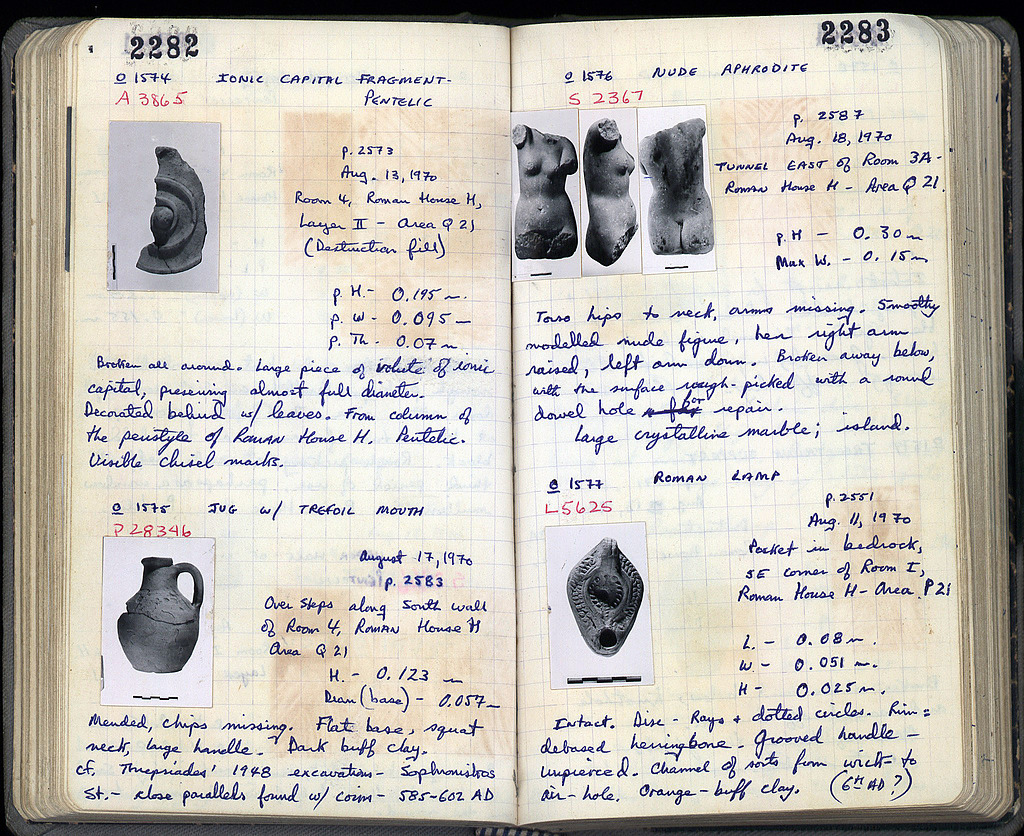 2282
O 1574 IONIC CAPITAL FRAGMENT-
A 3865 PENTELIC
p. 2573
Aug. 13, 1970
Room 4, Roman House H,
Layer II - Area Q 21
(Destruction fill)
p. H. - 0.195 m.
p. W - 0.095 m
p. Th - 0.07 m
Broken all around. Large piece of volute of ionic
capital, preserving almost full diameter.
Decorated behind w/ leaves. From column of
the peristyle of Roman House H. Pentelic.
Visible chisel marks.
O 1575 JUG W/ TREFOIL MOUTH
P 28346
August 17, 1970
p. 2583
Over steps along South wall
of Room 4, Roman House H
Area Q 21
H. - 0.123 m
Diam (base) - 0.057 m
Mended, chips missing. Flat base, squat
neck, large handle. Dark buff clay.
cf. Threpsiades' 1948 excavations - Sophronistros
St. - close parallels found w/ coins - 585-602 AD
2283
O 1576 NUDE APHRODITE
S 2367
p. 2587
Aug. 18, 1970
TUNNEL EAST of Room 3A-
Roman House H - Area Q 21.
p. H - 0.30 m
Max W. - 0.15 m
Torso hips to neck, arms missing. Smoothly
modelled nude figure, her right arm
raised, left arm down. Broken away below,
with the surface rough-picked with a round
dowel hole for repair.
Large crystalline marble; island.
O 1577 ROMAN LAMP
L 5625
p. 2551
Aug. 11, 1970
Pocket in bedrock,
SE corner of Room I,
Roman House H - Area P 21
L. - 0.08 m.
W. - 0.051 m.
H - 0.025 m.
Intact. Disc - Rays + dotted circles. Rim =
debased herringbone. Grooved handle -
unpierced. Channel of sorts from wick- to
air-hole. Orange-buff clay. (6th AD?)